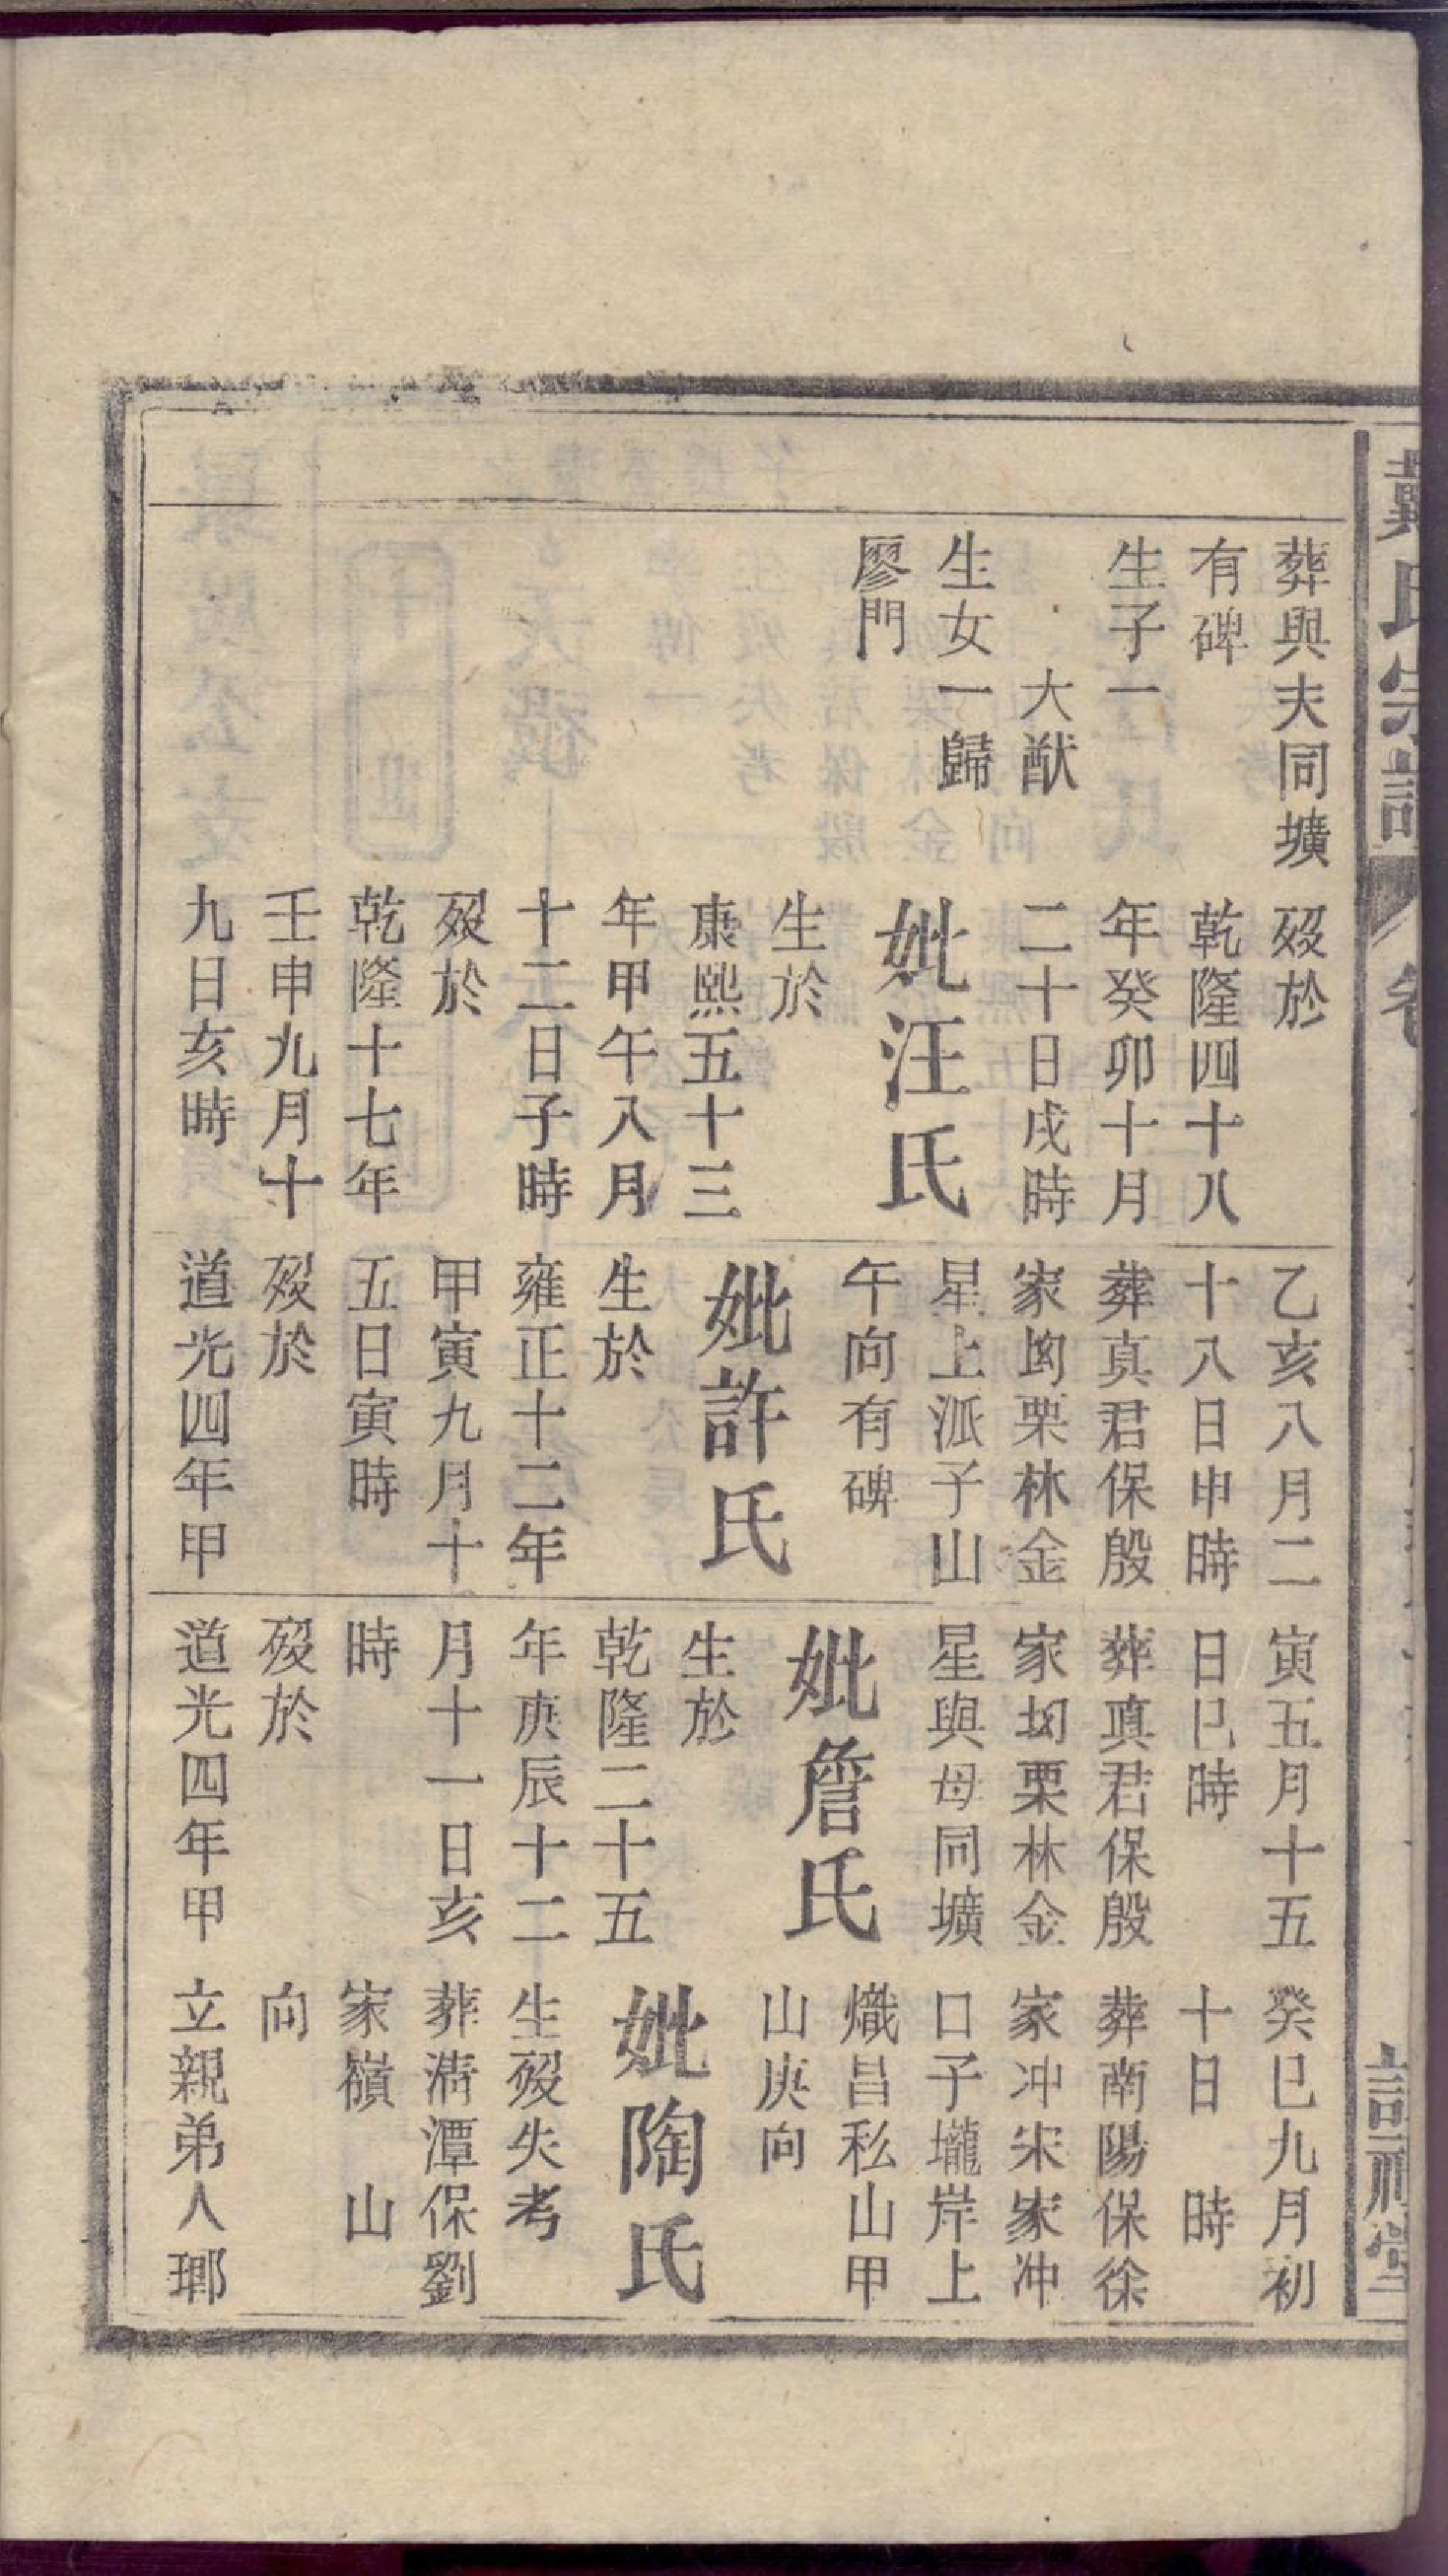 戴氏宗譜
葬與夫同壙
有碑
生子一
大猷
生女一歸
廖門
歿於
乾隆四十八
年癸卯十月
二十日戌時
妣汪氏
生於
康熙五十三
年甲午八月
十二日子時
歿於
乾隆十七年
壬申九月十
九日亥時
乙亥八月二
十八日申時
葬真君保殷
家坳栗林金
星上派子山
午向有碑
妣許氏
生於
雍正十二年
甲寅九月十
五日寅時
歿於
道光四年甲
寅五月十五
日巳時
葬真君保殷
家坳栗林金
星與母同壙
妣詹氏
生於
乾隆二十五
年庚辰十二
月十一日亥
時
歿於
道光四年甲
癸巳九月初
十日　時
葬南陽保徐
家冲宋家冲
口子壠岸上
熾昌私山甲
山庚向
妣陶氏
生歿失考
葬清潭保劉
家嶺　山
向
立親弟人瑯